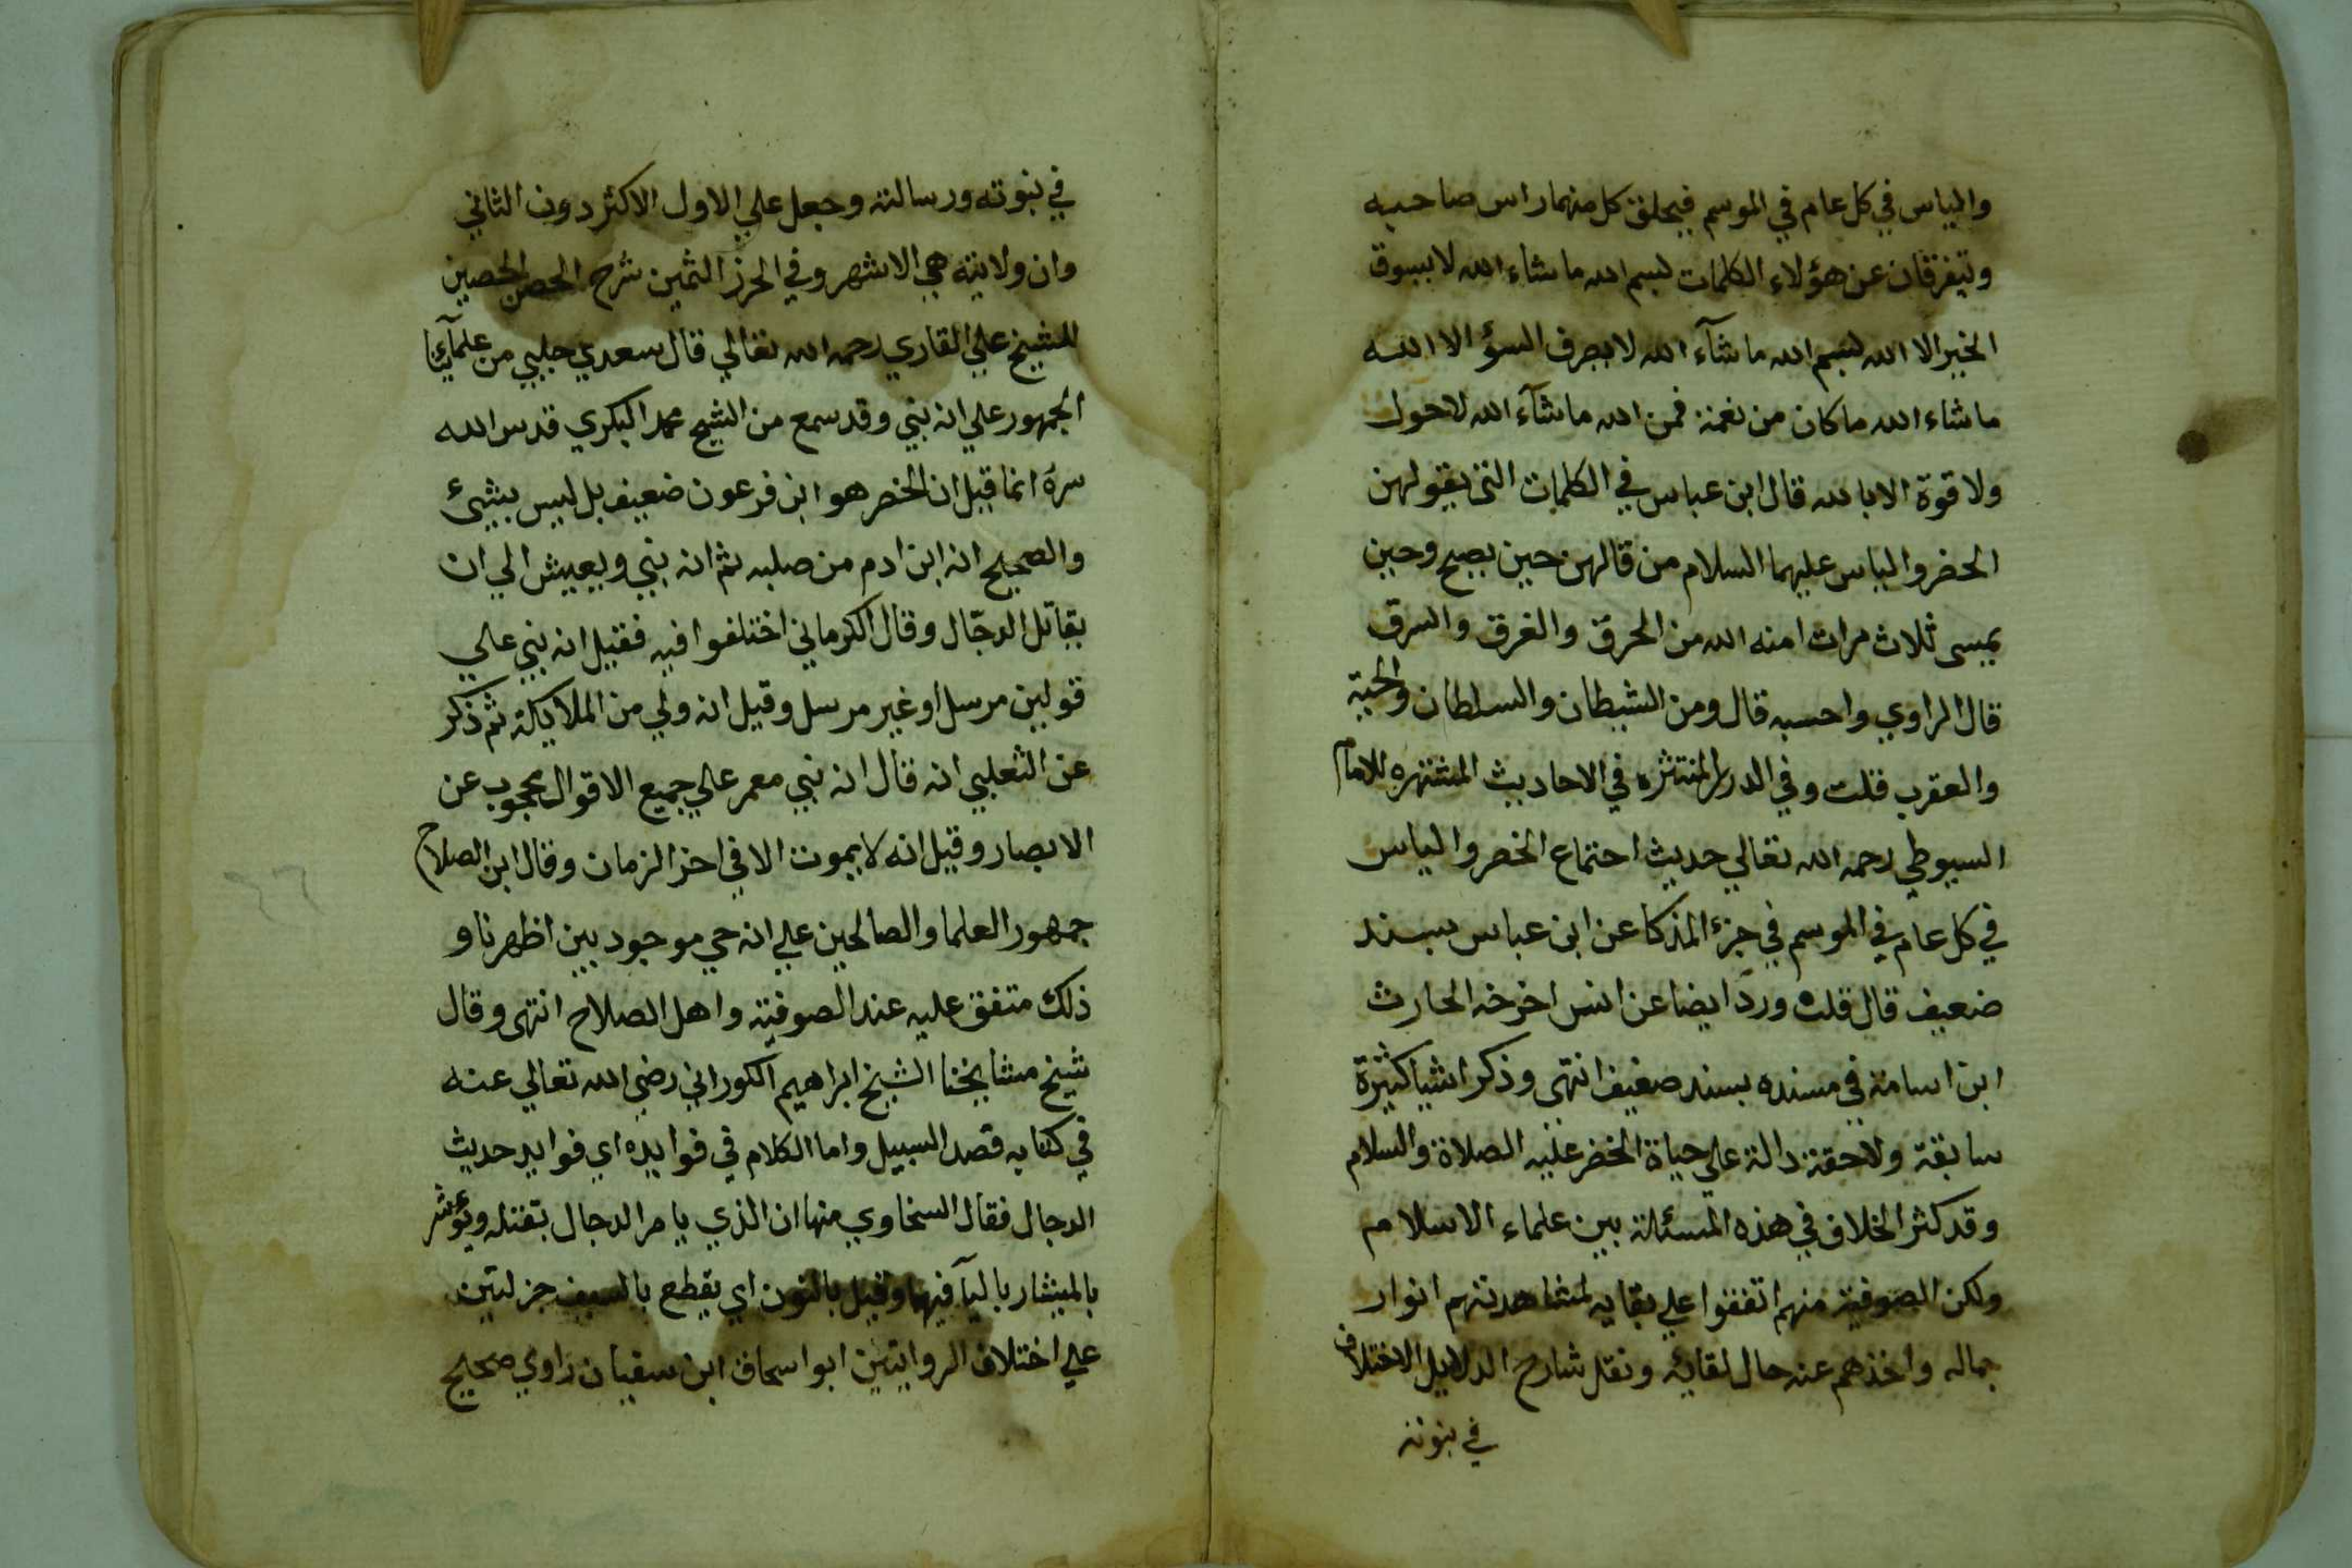 والياس في كل عام في الموسم فيحلق كل منهما راس صاحبه
ويتفرقان عن هؤلاء الكلمات بسم الله ما شاء الله لا يسوق
الخير الا الله بسم الله ما شآء الله لا يصرف السؤ الا الله
ما شاء الله ما كان من نعمة فمن الله ما شآء الله لا حول
ولا قوة الا بالله قال ابن عباس في الكلمات التي يقولهن
الخضر والياس عليهما السلام من قالهن حين يصبح وحين
يمسى ثلاث مرات امنه الله من الحرق والغرق والسرق
قال الراوي واحسبه قال ومن الشيطان والسلطان والحية
والعقرب قلت وفي الدرر المنتثره في الاحاديث المشتهره للامام
السيوطي رحمه الله تعالي حديث اجتماع الخضر والياس
في كل عام في الموسم في جزء المذكا عن ابن عباس بسند
ضعيف قال قلت ورد ايضا عن انس اخرجه الحارث
ابن اسامة في مسنده بسند ضعيف انتهى وذكر اشيا كثيرة
سابقة ولاحقة دالة علي حياة الخضر عليه الصلاة والسلام
وقد كثر الخلاف في هذه المسئلة بين علماء الاسلام
ولكن الصوفية منهم اتفقوا علي بقايه لمشاهدتهم انوار
جماله واخذهم عنه حال لقائه ونقل شارح الدلايل الاختلاف
في نبوته
في نبوته ورسالته وجعل علي الاول الاكثر دون الثاني
وان ولايته هي الاشهر وفي الحرز الثمين شرح الحصن الحصين
للشيخ علي القاري رحمه الله تعالي قال سعدي جلبي من علمآئنا
الجمهور علي انه نبي وقد سمع من الشيخ محمد البكري قدس الله
سره انما قيل ان الخضر هو ابن فرعون ضعيف بل ليس بشيئ
والصحيح انه ابن ادم من صلبه ثم انه نبي ويعيش الي ان
يقاتل الدجّال وقال الكرماني اختلفوا فيه فقيل انه نبي علي
قولين مرسل او غير مرسل وقيل انه ولي من الملايكة ثم ذكر
عن الثعلبي انه قال انه نبي معمر علي جميع الاقوال محجوب عن
الابصار وقيل انه لا يموت الا في اخر الزمان وقال ابن الصلاح
جمهور العلما والصالحين علي انه حي موجود بين اظهرنا و
ذلك متفق عليه عند الصوفية واهل الصلاح انتهى وقال
شيخ مشايخنا الشيخ ابراهيم الكوراني رضي الله تعالي عنه
في كتابه قصد السبيل واما الكلام في فوايده اي فوايد حديث
الدجال فقال السخاوي منها ان الذي يامر الدجال بقتله ويؤشر
بالميشار باليآ فيها وقيل بالنون اي يقطع بالسيف جزلتين
علي اختلاف الروايتين ابو اسحاق ابن سفيان راوي صحيح